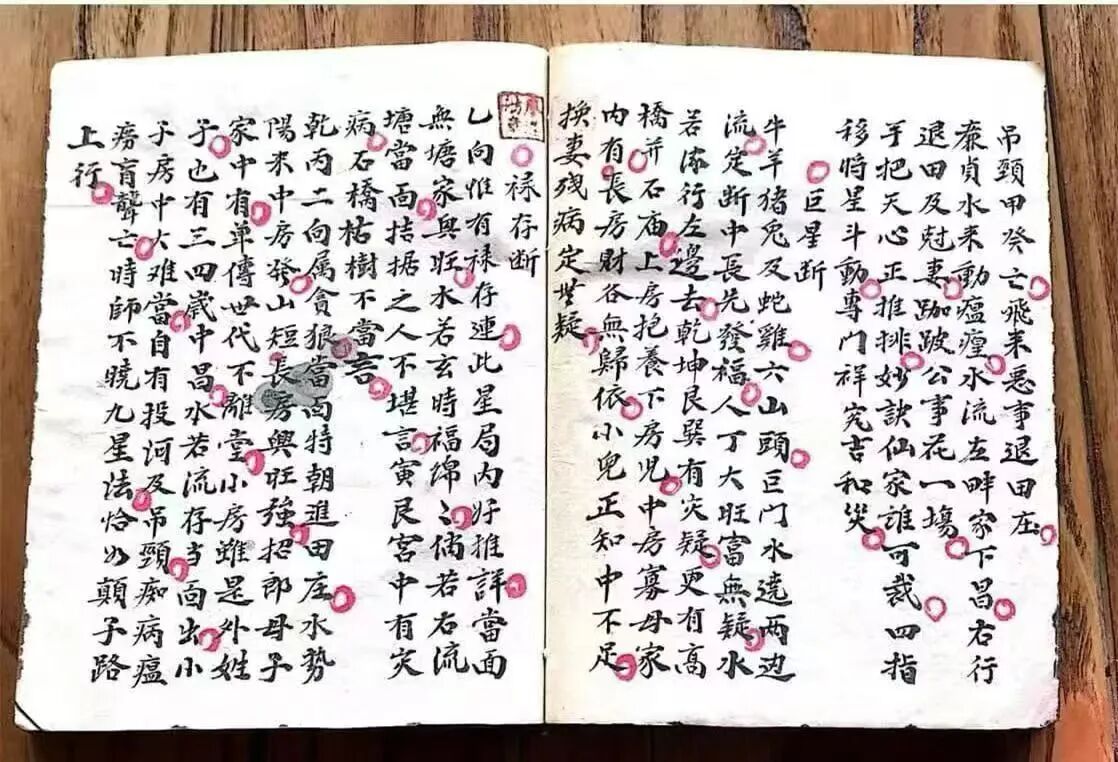 吊頸甲癸亡飛来惡事退田庄
泰貞水来動瘟瘽水流左畔家下昌右行
退田及尅妻跏跛公事花一塲
手把天心正推排妙訣仙家誰可裁四指
移時星斗動專門祥究吉和災
巨星断
牛羊猪兎及蛇雞六山頭巨門水遶两边
流定断中長先發福人丁大旺富無疑水
若滚行左邊去乾坤艮巽有災疑更有高
橋并石庙上房抱養下房児中房寡母家
内有長房財谷無歸依小児正知中不足
換妻残病定無疑
禄存断
乙向惟有禄存連此星局内好推詳當面
無塘家興旺水若玄時福绵〻倘若右流
塘當面拮据之人不堪言寅艮宮中有灾
病石橋枯樹不當言
乾丙二向属貪狼當面特朝進田庄水勢
陽来中房發山短長房興旺強招郎母子
家中有单傳世代不離堂小房雖是外姓
子也有三四歳中昌水若流存当面出小
子房中大难當自有投河及吊頸痴病瘟
痨盲聾亡時師不曉九星法恰似顛子路
上行